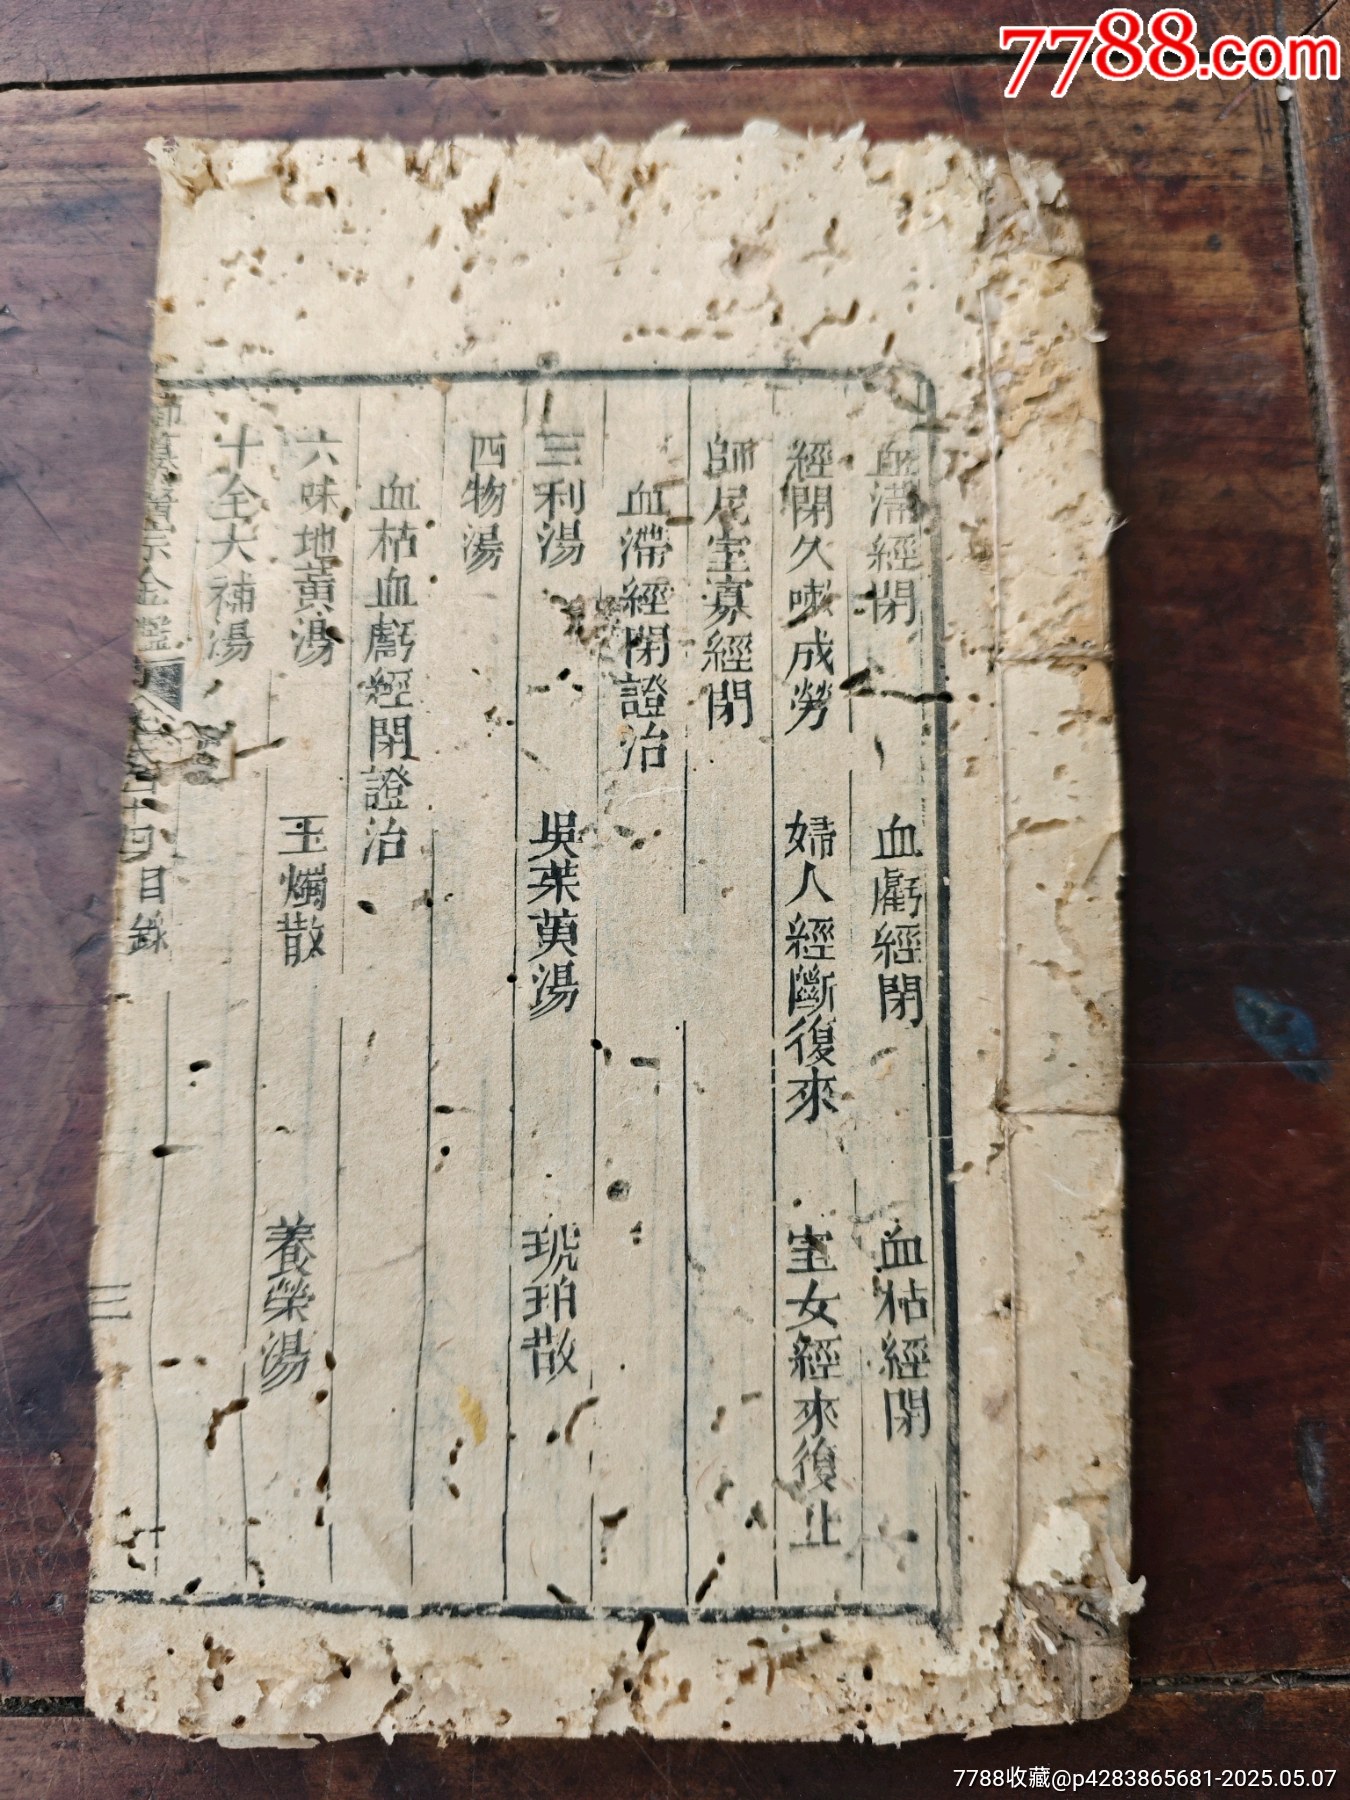 7788.com
血滯經閉 血虧經閉 血枯經閉
經閉久嗽成勞 婦人經斷復來 室女經來復止
師尼室寡經閉
血滯經閉證治
三和湯 吳茱萸湯 琥珀散
四物湯
血枯血虧經閉證治
六味地黃湯 玉燭散 養榮湯
十全大補湯
宗金鑑 目錄 三
7788收藏@p4283865681-2025.05.07